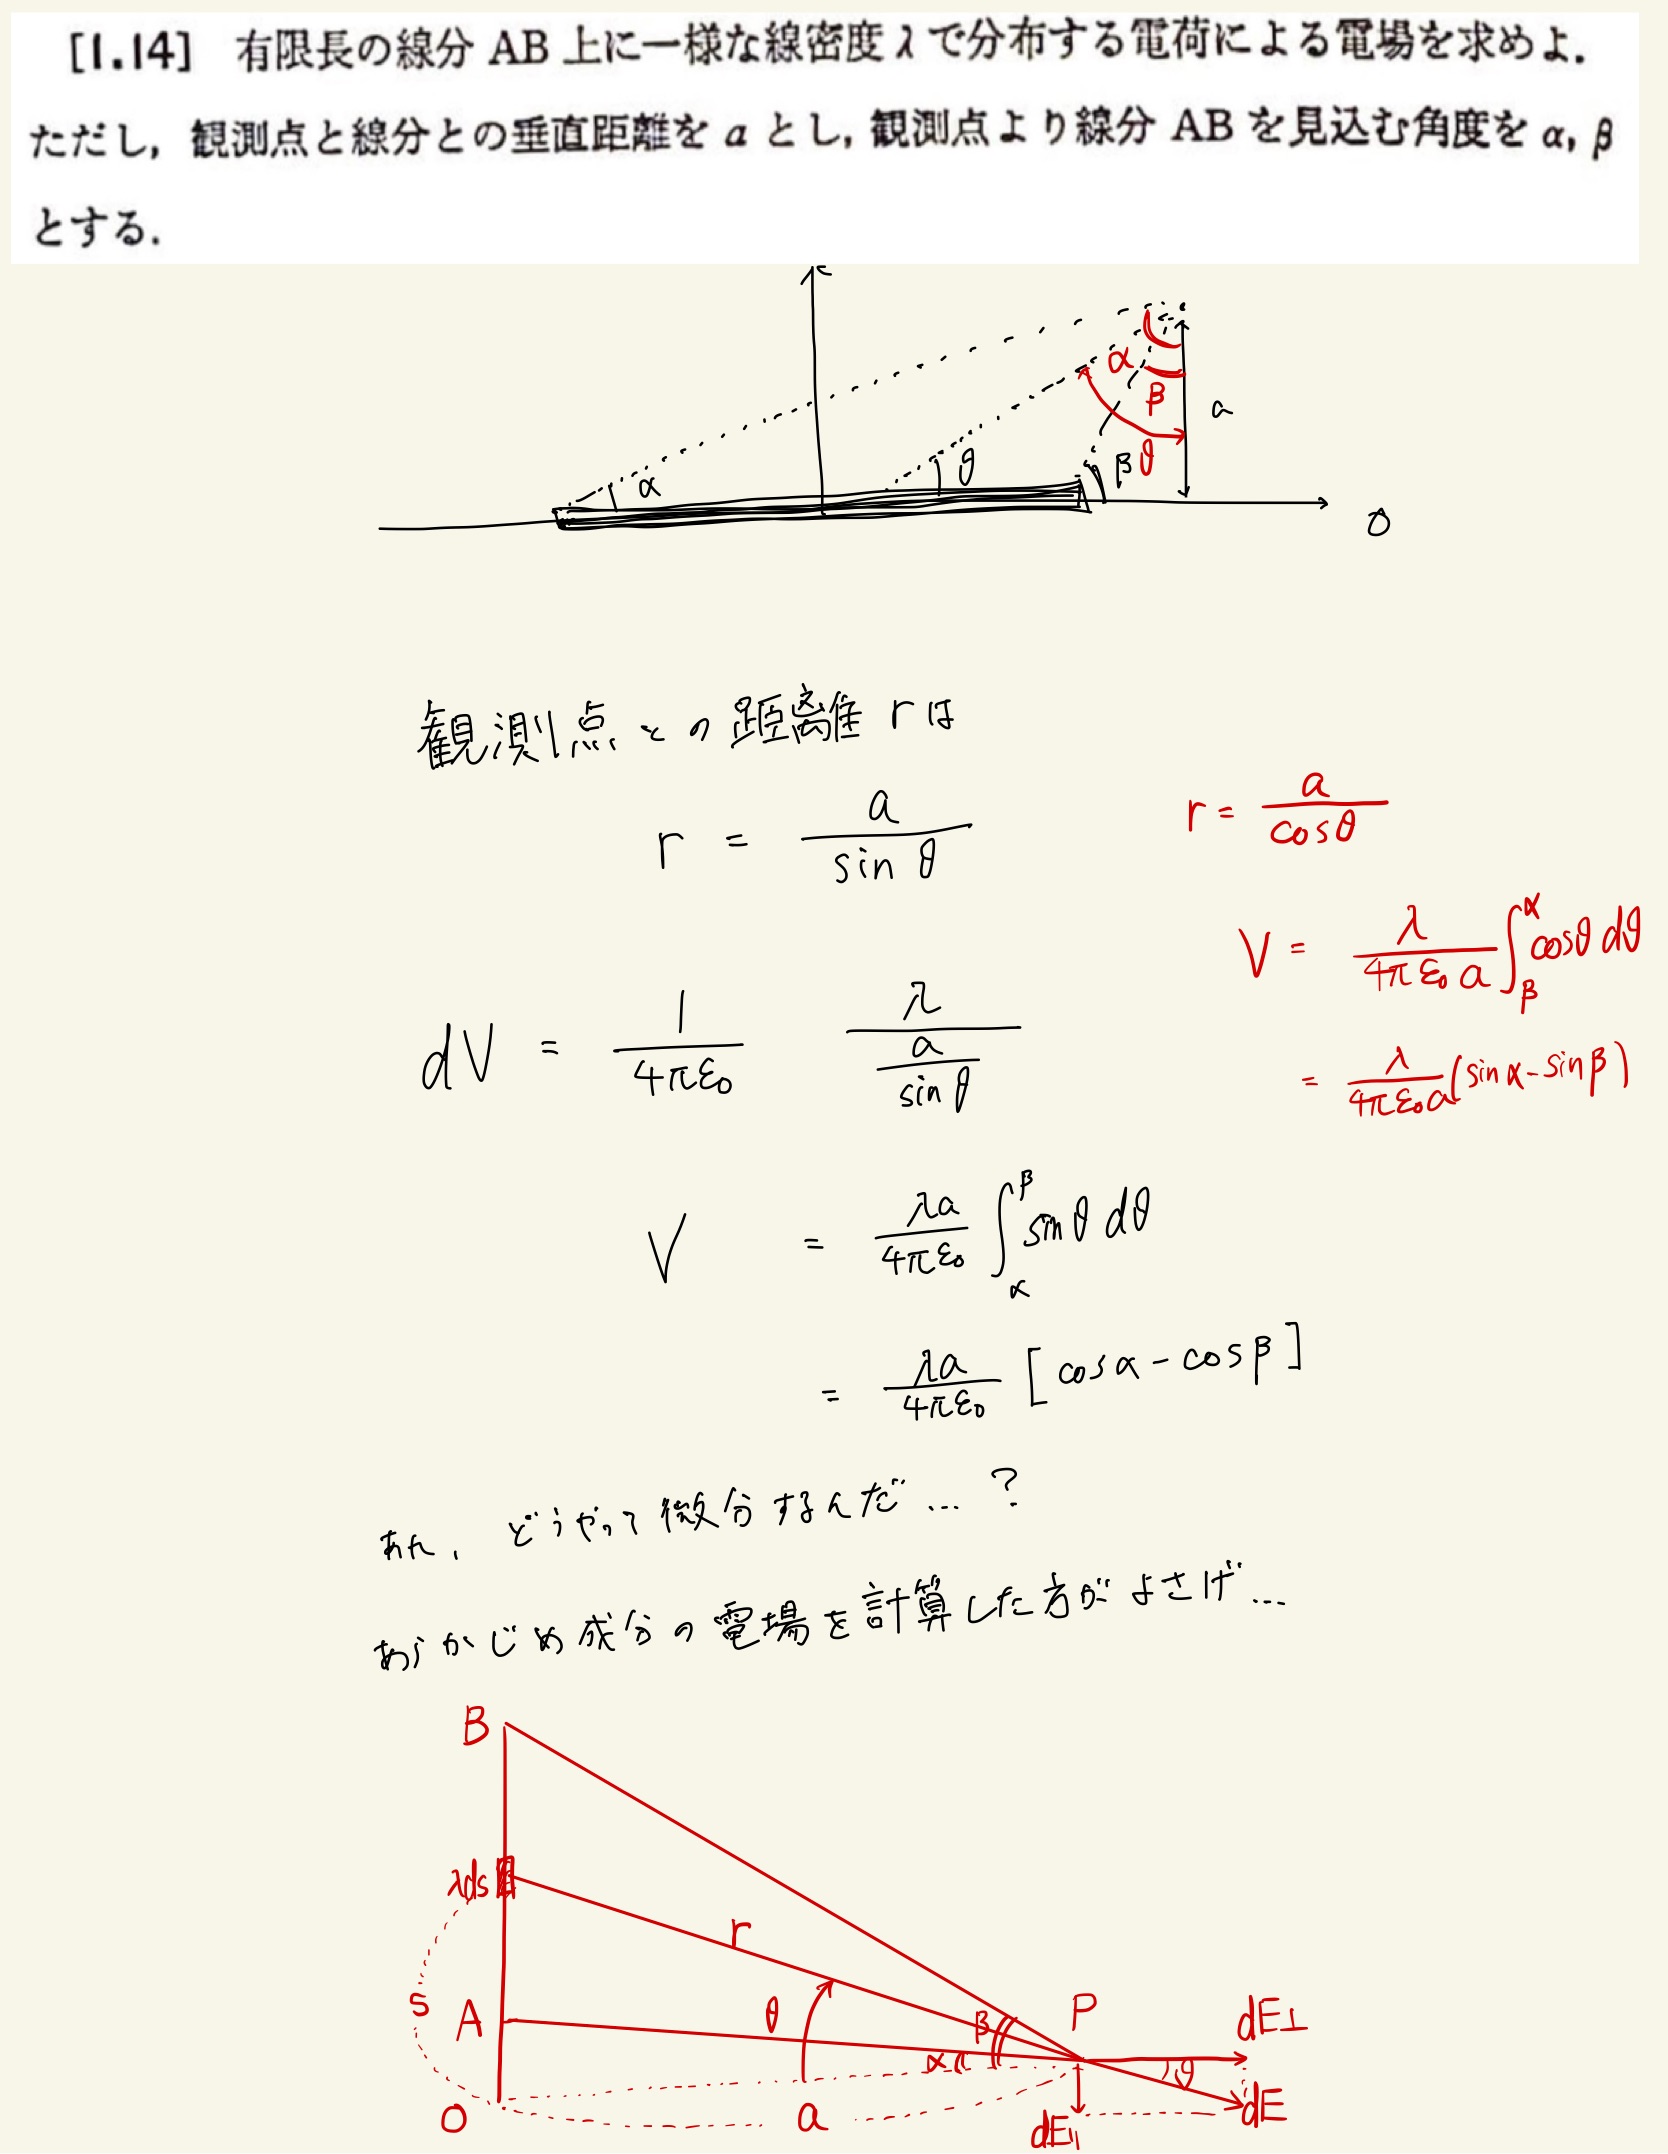 [1.14] 有限長の線分 AB 上に一様な線密度 λ で分布する電荷による電場を求めよ.
ただし, 観測点と線分との垂直距離を a とし, 観測点より線分 AB を見込む角度を α, β
とする.
α
β
a
α
θ
β
θ
0
観測点との距離 r は
r = a / sin θ
r = a / cos θ
V = λ / 4πε₀a ∫_β^α cosθ dθ
dV = 1 / 4πε₀ λ / (a / sin θ)
= λ / 4πε₀a (sin α - sin β)
V = λa / 4πε₀ ∫_α^β sin θ dθ
= λa / 4πε₀ [cos α - cos β]
あれ、どうやって微分するんだ…?
あらかじめ成分の電場を計算した方がよさげ…
B
λds
r
S
A
θ
β
α
P
dE⊥
θ
dE
O
a
dE∥